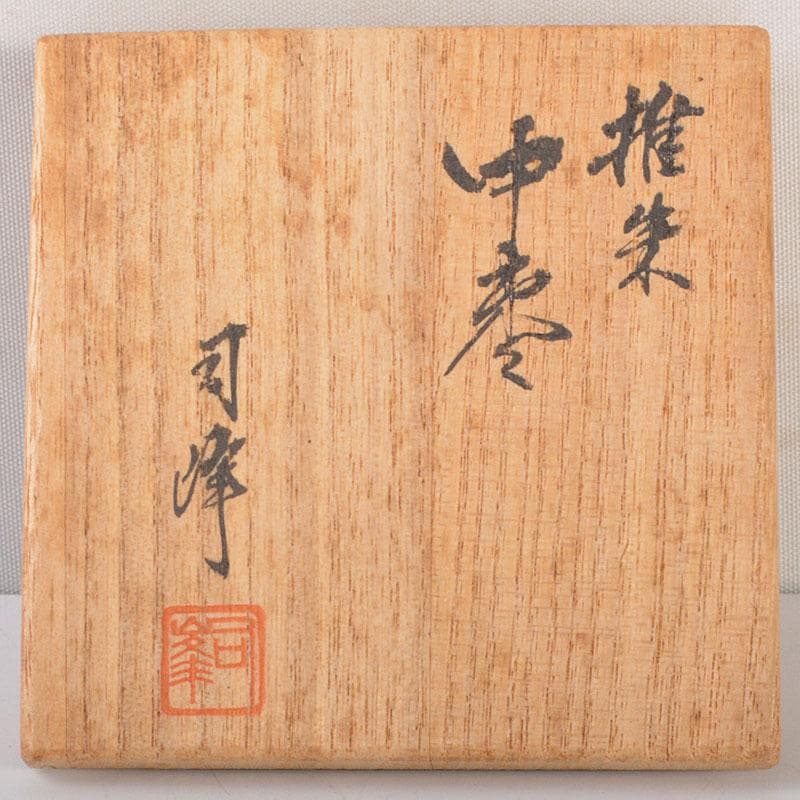 推朱
中棗
司峰
司峰